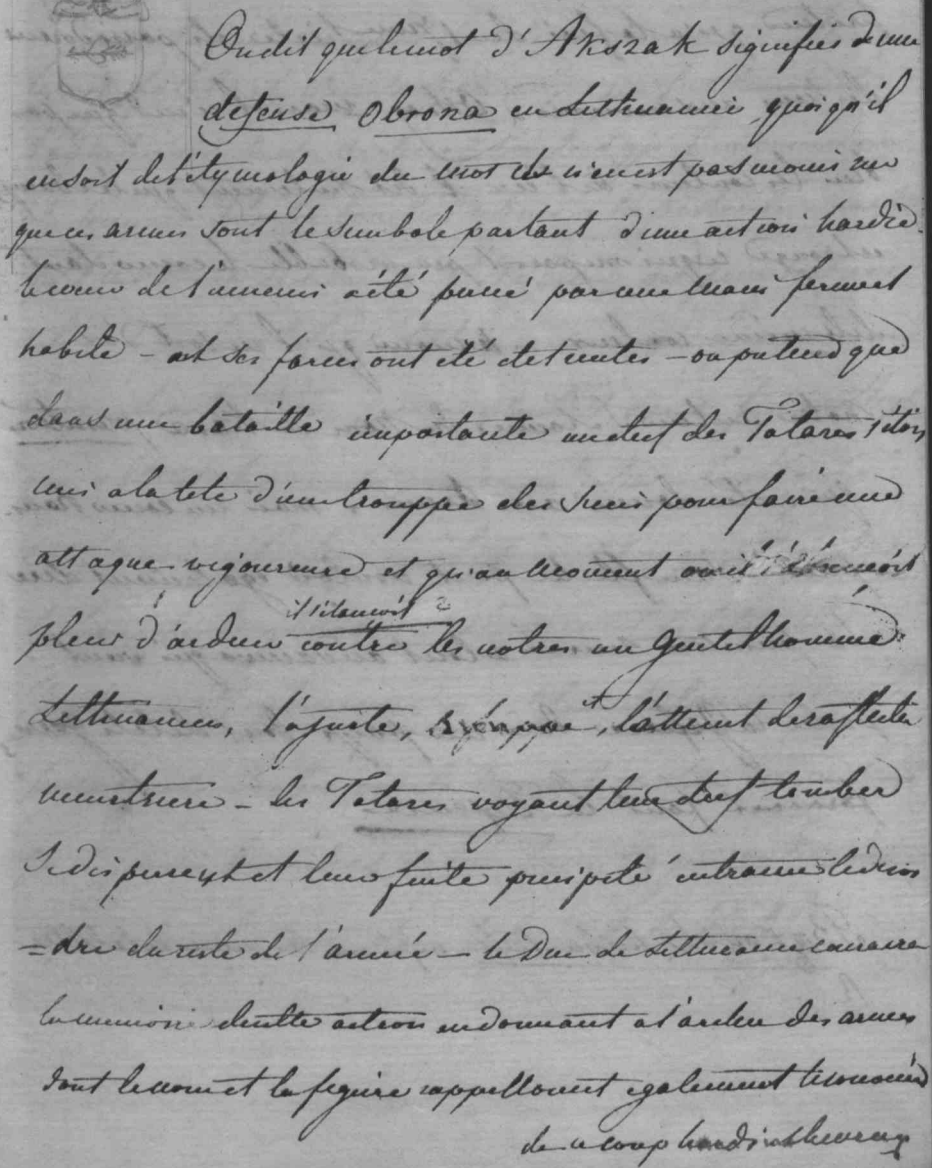 On dit que le mot d'Akszak signifies d'une
defense Obrona en Lettuanie quoi qu'il
en soit de l'étymologie du mot il n'en est pas moins vrai
que ces armes sont le simbole parlant d'une action hardie.
le cœur de l'ennemi a été percé par une main ferme et
habile – et ses forces ont été detruites – on pretend que
dans une bataille importante un chef des Tatares s'étoit
mis a la tete d'une trouppe des siens pour faire une
attaque vigoureuse et qu'au moment où
il s'élancoit
plein d'ardeur contre les notres un Gentilhomme
Lettuanien, l'ajuste, l'atteint de sa fleche
meurtriere – les Tatares voyant leur chef tomber
se dispersent et leur fuite precipité entraine le desor
=dre du reste de l'armée – le Duc de Lettuanie consacra
la memoire de cette action en donnant a l'archer des armes
dont le nom et la figure rappellouent egalement le souvenir
de ce coup hardi et heureux